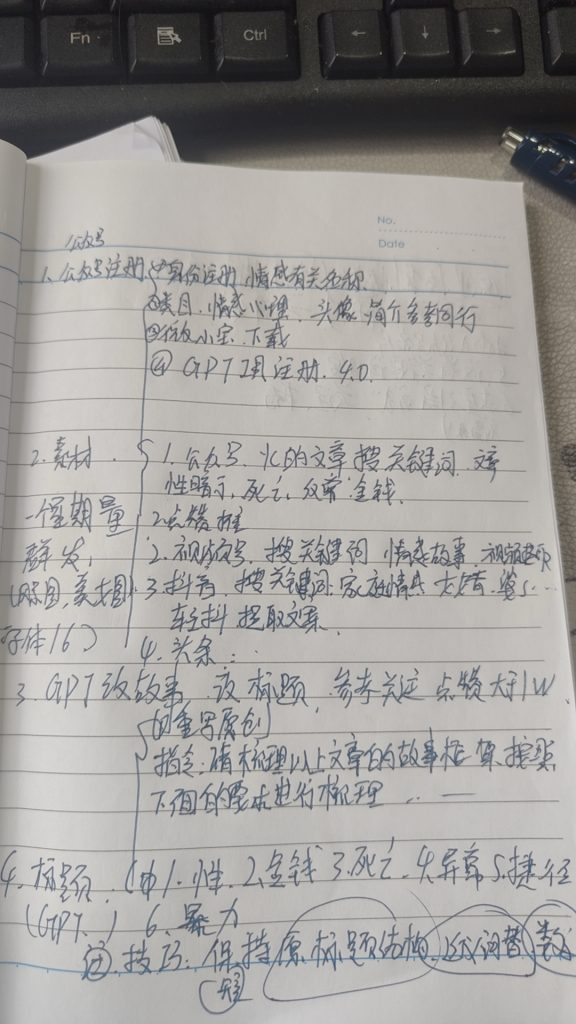 Fn
Ctrl
No.
Date
公众号
1. 公众号注册 ①身份注册 情感有关名称
②类目, 情感心理, 头像 简介参考同行
下载
④ GPT 注册. 4.0.
2. 素材. 1. 公众号. 的文章 搜关键词.
性暗示, 死亡, 金钱.
一个星期量 2 点赞 推
群发, 2. 视频号, 搜关键词 情感故事. 视频
3. 抖音, 搜关键词. 家庭情感
字体16) 轻抖 提取文案.
4. 头条...
3. GPT改故事. 改标题. 参考关注 点赞大于1W
的重写原创
指令: 请梳理以上文章的故事框架, 按照
下面的要求进行梳理 ... —
4. 标题. 1. 性. 2. 金钱 3. 死亡. 4. 异常 5. 捷径
(GPT.) 6. 暴力
技巧: 保持原标题结构. 词替